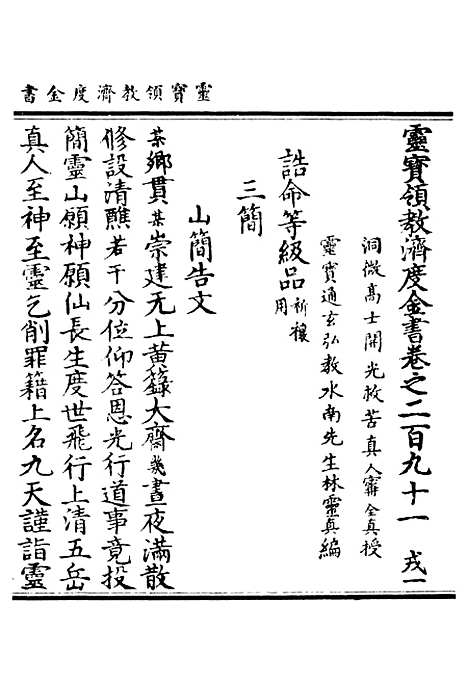 靈寶領教濟度金書
靈寶領教濟度金書卷之二百九十一 戎一
洞微高士開光救苦真人甯全真授
靈寶通玄弘教水南先生林靈真編
誥命等級品祈禳用
三簡
山簡告文
某鄉貫某崇建无上黄籙大齋幾晝夜滿散
修設清醮若干分位仰答恩光行道事竟投
簡靈山願神願仙長生度世飛行上清五岳
真人至神至靈乞削罪籍上名九天謹詣靈